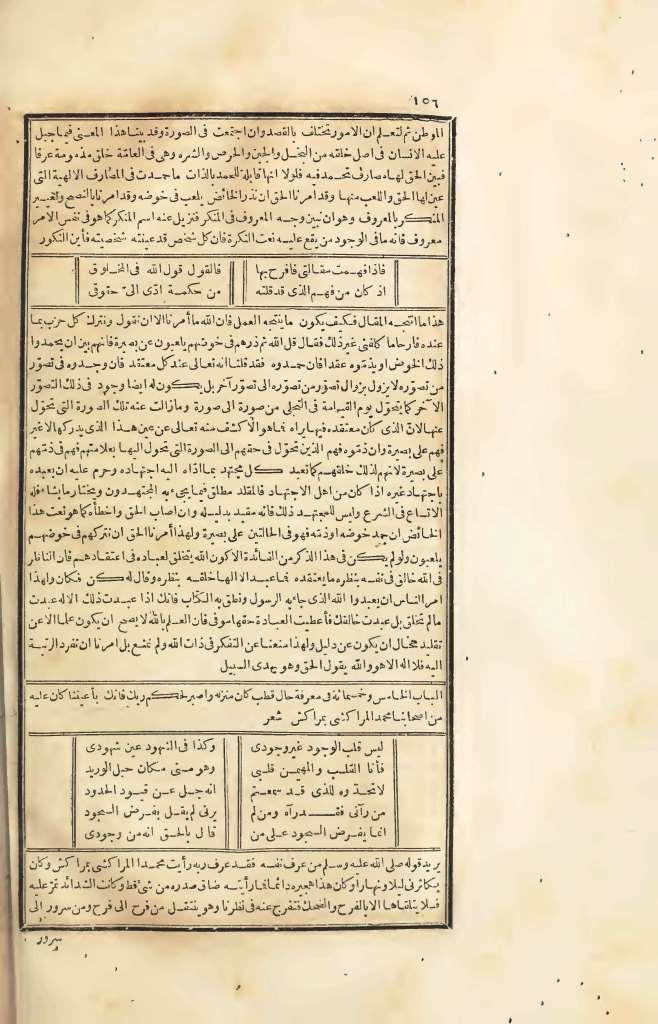 ١٥٦
الموطن ثم لتعلم ان الامور تختلف بالقصد وان اجتمعت فى الصورة وقد بينا هذا المعنى فيما جبل
عليه الانسان فى اصل خلقته من البخل والجبن والحرص والشره وهى فى العامّة خلق مذمومة عرفا
فبين الحق لها مصارف تحمد فيه فلولا انها قابلة للحمد بالذات ما حمدت فى المصارف الالهية التى
عين لها الحق واللعب منها وقد امرنا الحق ان نذر الخائض يلعب فى خوضه وقد امرنا بالنصح وتغيير
المنكر بالمعروف وهو ان نبين وجه المعروف فى المنكر فنزيل عنه اسم المنكر كما هو فى نفس الامر
معروف فانه ما فى الوجود من يقع عليه نعت النكرة فان كل شخص قد عينته شخصيته فأين النكور
فاذا فهمت مقالتى فافرح بها فالقول قول الله فى المخلوق
اذ كان من فهم الذى قد قلته من حكمة ادّى الىّ حقوقى
هذا ما انتجه المقال فكيف يكون ما ينتجه العمل فان الله ما أمرنا الا ان نقول ونترك كل حزب بما
عنده فارحا ما كلفنى غير ذلك فقال قل الله ثم ذرهم فى خوضهم يلعبون عن بصيرة فانهم بين ان يحمدوا
ذلك الخوض او يذمّوه عقدا فان حمدوه فقد قلنا انه تعالى عند كل معتقد فان وجوده فى تصوّر
من تصوّره لا يزول بزوال تصوّر من تصوّره الى تصوّر آخر بل يكون له ايضا وجود فى ذلك التصوّر
الآخر كما يتحوّل يوم القيامة فى التجلى من صورة الى صورة وما زالت عنه تلك الصورة التى تحوّل
عنها لان الذى كان معتقده فيها يراه فما هو الا كشف منه تعالى عن عين هذا الذى يدركها لا غير
فهم على بصيرة وان ذمّوه فهم الذين تحوّل فى حقهم الى الصورة التى تحول اليها بعلامتهم فهم فى ذمّهم
على بصيرة لانهم لذلك خلقهم كما تعبد كل مجتهد بما ادّاه اليه اجتهاده وحرم عليه ان يعبده
باجتهاد غيره اذا كان من اهل الاجتهاد فالمقلد مطلق فيما يجىء به المجتهدون ويختار ما يشاء فله
الاتساع فى الشرع وليس للمجتهد ذلك فانه مقيد بدليله وان اصاب الحق واخطأه كما هو نعت هذا
الخائض ان حمد خوضه او ذمّه فهو فى الحالتين على بصيرة ولهذا أمرنا الحق ان نتركهم فى خوضهم
يلعبون ولو لم يكن فى هذا الذكر من الفائدة الا كون الله يتخلق لعباده فى اعتقادهم فان الناظر
فى الله خالق فى نفسه بنظره ما يعتقده فما عبد الا الها خلقه بنظره وقال له كن فكان ولهذا
امر الناس ان يعبدوا الله الذى جاء به الرسول ونطق به الكتاب فانك اذا عبدت ذلك الاله عبدت
ما لم تخلق بل عبدت خالقك فأعطيت العبادة حقها موفى فان العلم بالله لا يصح ان يكون علما الا عن
تقليد محال ان يكون عن دليل ولهذا منعنا عن التفكر فى ذات الله ولم نمنع بل امرنا ان نفرد الرتبة
اليه فلا اله الا هو والله يقول الحق وهو يهدى السبيل
الباب الخامس وخمسمائة فى معرفة حال قطب كان منزله واصبر لحكم ربك فانك بأعيننا كان عليه
من اصحابنا محمد المراكشى بمراكش شعر
ليس قلب الوجود غير وجودى وكذا فى الشهود عين شهودى
فأنا القلب والمهيمن قلبى وهو منى مكان حبل الوريد
لا تحدّوه للذى قد سمعتم انه جل عن قيود الحدود
من رآنى فقد رآه ومن لم يرنى لم يقل بفرض السجود
انما يفرض السجود على من قال بالحق انه من وجودى
يريد قوله صلى الله عليه وسلم من عرف نفسه فقد عرف ربه رأيت محمدا المراكشى بمراكش وكان
يكاثرنى ليلا ونهارا وكان هذا هجيره دائما فما رأيته ضاق صدره من شئ قط وكانت الشدائد تمرّ عليه
فلا يتلقاها الا بالفرح والضحك فتفرج عنه فى نظرنا وهو ينتقل من فرح الى فرح ومن سرور الى
سرور